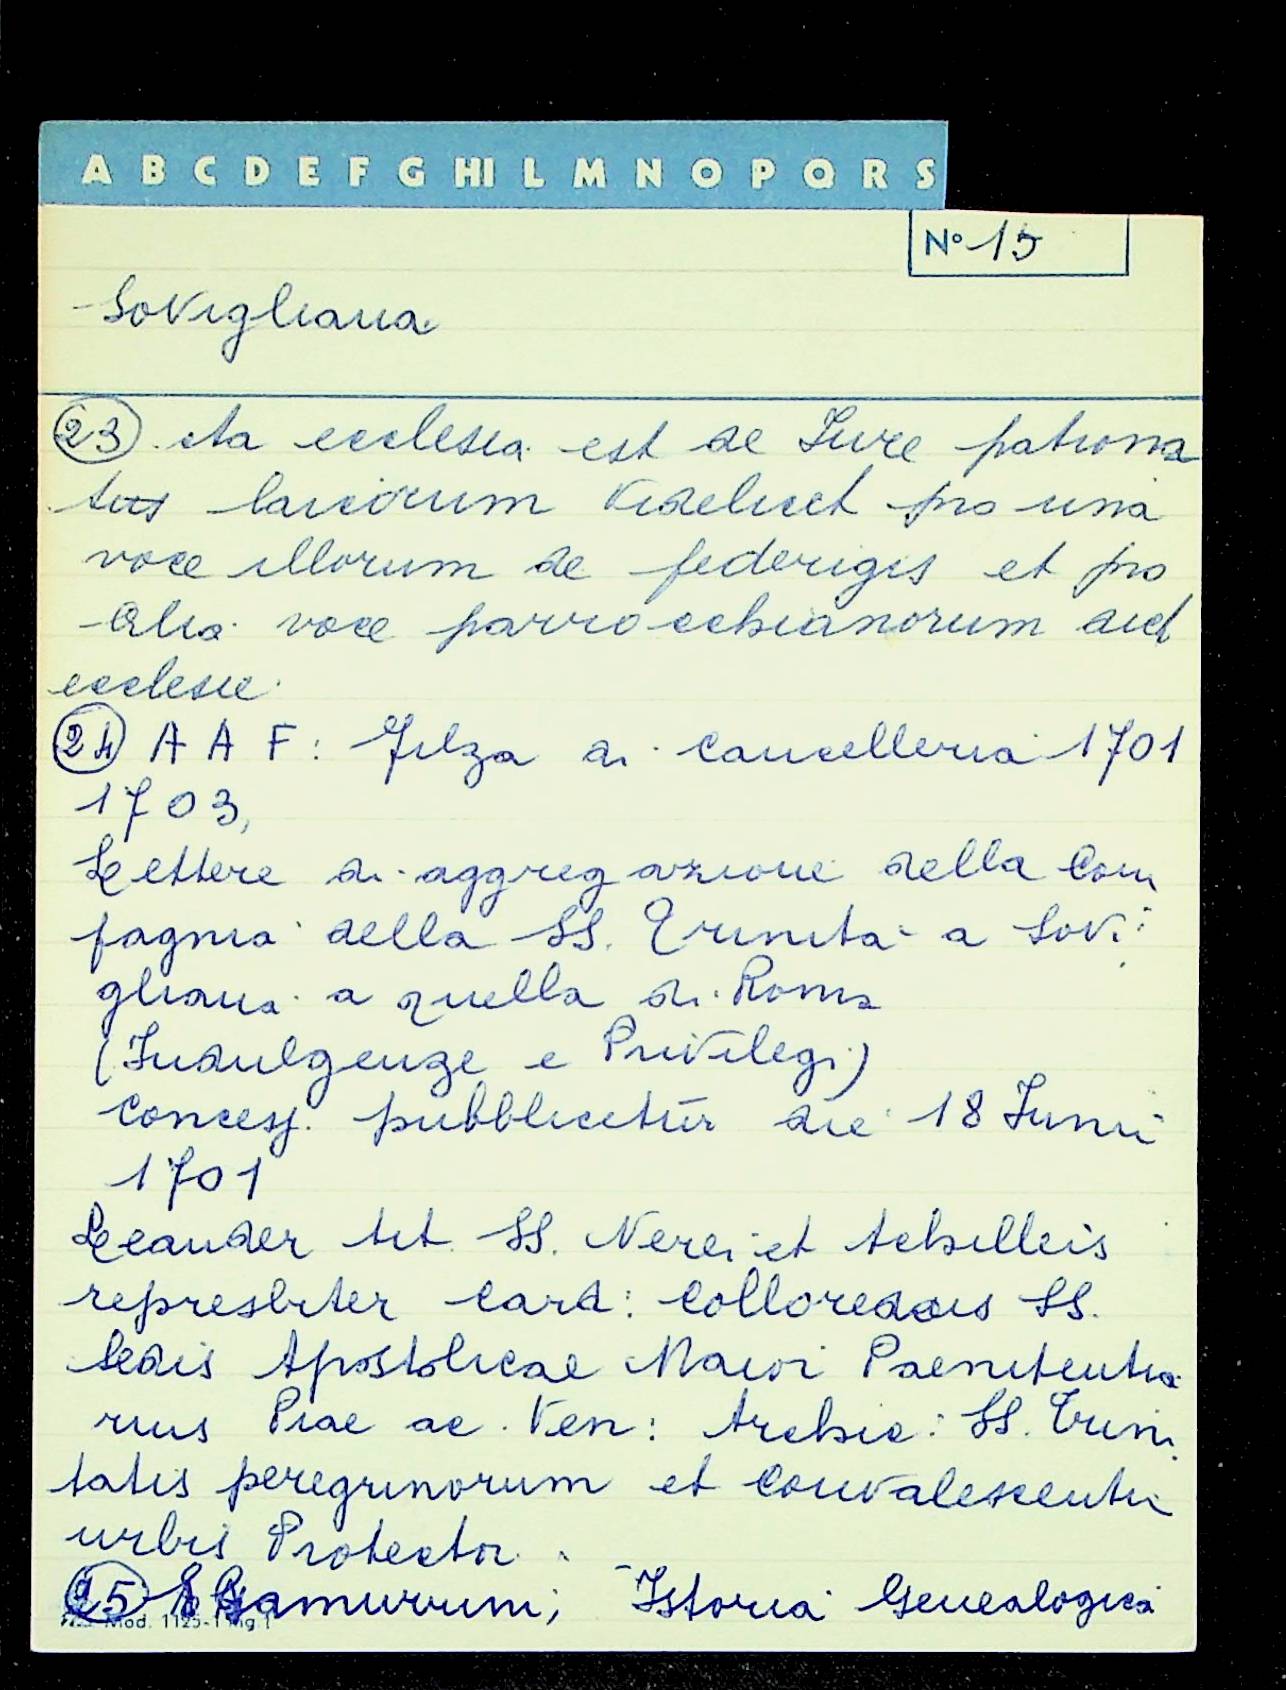 A B C D E F G HI L M N O P Q R S
N° 15
Sovigliana
23 cta ecclesia est de Jure patrona
tus laicorum videlicet pro una
voce illorum de federigis et pro
Alia voce parrocchianorum dict
ecclesie.
24 A A F: Filza di cancelleria 1701
1703,
Lettere di aggregazione della Com
pagnia della SS. Trinità a Sovi
gliana a quella di Roma
(Indulgenze e Privilegi)
concess. pubblicetur die 18 Junii
1701
Leander tit. SS. Nerei et Achilleis
represbiter Card: Colloredus SS.
Sedis Apostolicae Maior Paenitentia
rius Piae ac Ven: Archic: SS. Trini
tatis peregrinorum et Convalescentu
urbis Protector.
25 Gamurrini; Istoria Genealogica
Mod. 1125-1